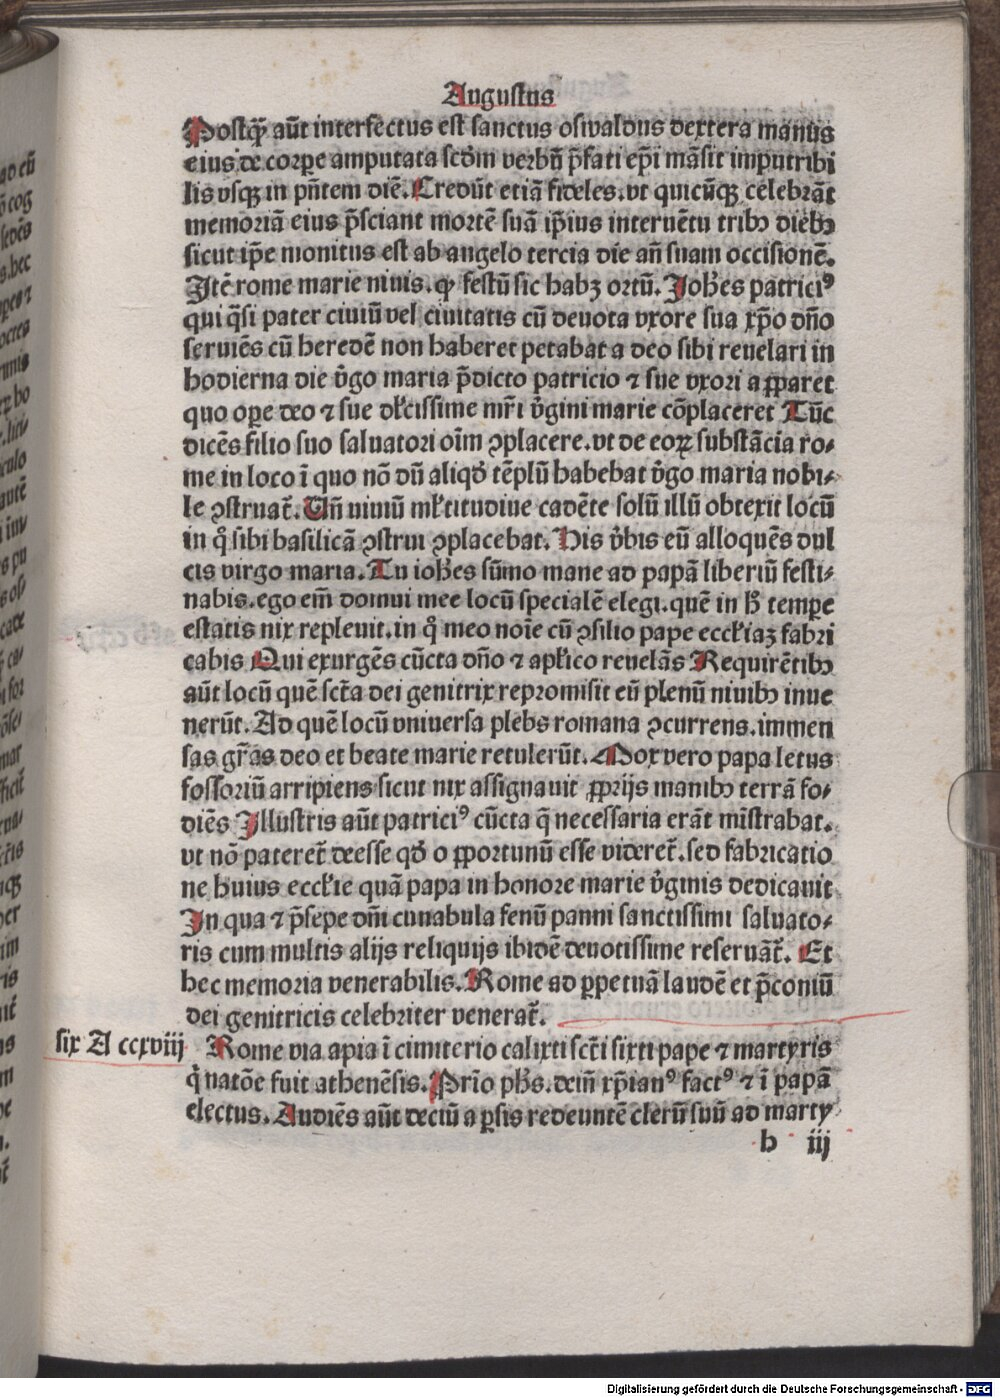 Augustus
Postq̄ȝ aūt interfectus est sanctus oswaldus dextera manus
eius de corꝑe amputata scḋm verbū p̄fati ep̄i māsit imputribi
lis vsqȝ in pn̄tem diē. Credūt etiā fideles. vt quicūqȝ celebrāt
memoriā eius p̄sciant mortē suā ip̄ius interuētu tribꝰ diebꝰ
sicut ip̄e monitus est ab angelo tercia die an̄ suam occisionē.
Itē rome marie niuis. qꝫ festū sic habꝫ ortū. Joh̄es patriciꝰ
qui q̄si pater ciuiū vel ciuitatis cū deuota vxore sua xp̄o dn̄o
seruiēs cū heredē non haberet petabat a deo sibi reuelari in
hodierna die v̄go maria p̄dicto patricio ⁊ sue vxori apparet
quo oꝑe deo ⁊ sue dl̄cissime mr̄i v̄gini marie cōplaceret Tūc
dicēs filio suo saluatori oīm ꝯplacere. vt de eoꝝ substācia ro⸗
me in loco ī quo nō dū aliqḋ tēplū habebat v̄go maria nobi⸗
le ꝯstruat̄. Vn̄ niuiū ml̄titudine cadēte solū illū obtexit locū
in q̊ sibi basilicā ꝯstrui ꝯplacebat. His v̄bis eū alloquēs dul
cis virgo maria. Tu ioh̄es sūmo mane ad papā liberiū festi⸗
nabis. ego em̄ domui mee locū specialē elegi. quē in h̄ temꝑe
estatis nix repleuit. in q̊ meo noīe cū ꝯsilio pape eccl̄iaȝ fabri
cabis Qui exurgēs cūcta dn̄o ⁊ apl̄ico reuelās Requirētibꝰ
aūt locū quē sct̄a dei genitrix repromisit eū plenū niuibꝰ inue
nerūt. Ad quē locū vniuersa plebs romana ꝯcurrens. immen
sas gr̄as deo et beate marie retulerūt. Mox vero papa letus
fossoriū arripiens sicut nix assignauit ꝓprijs manibꝰ terrā fo⸗
diēs Illustris aūt patriciꝰ cūcta q̄ necessaria erāt mīstrabat.
vt nō pateret̄ deesse qḋ opportunū esse videret̄. sed fabricatio
ne huius eccl̄ie quā papa in honore marie v̄ginis dedicauit
In qua ⁊ p̄sepe dn̄i cunabula fenū panni sanctissimi saluato⸗
ris cum multis alijs reliquijs ibidē deuotissime reseruāt̄. Et
hec memoria venerabilis. Rome ad ꝑpetuā laudē et p̄coniū
dei genitricis celebriter venerat̄.
six A ccxviij Rome via apia ī cimiterio calixti sct̄i sixti pape ⁊ martyris
q̊ natōe fuit athenēsis. Prīo ph̄s. dein̄ xp̄ianꝰ factꝰ ⁊ ī papā
electus. Audiēs aūt deciū a ꝑsis redeuntē clerū suū ad marty
b iij
Digitalisierung gefördert durch die Deutsche Forschungsgemeinschaft - DFG